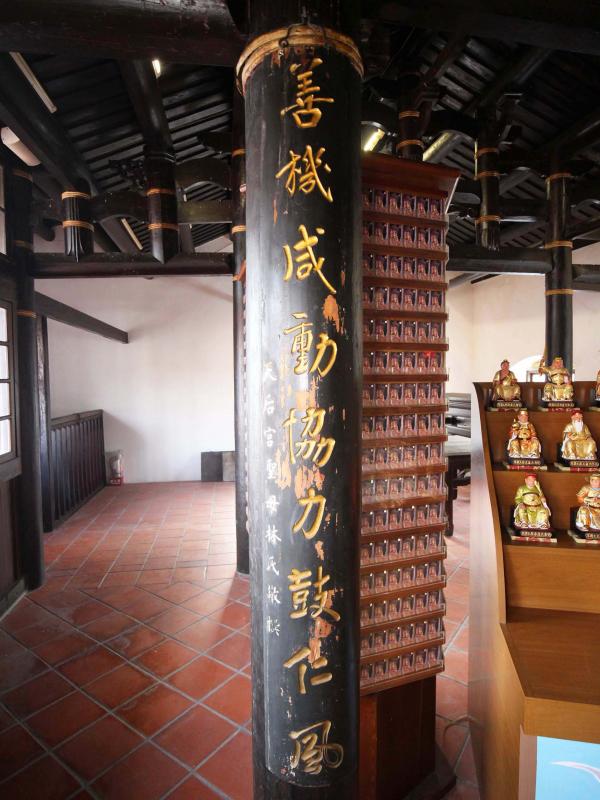 善機咸動協力鼓仁風
天后宮聖母林氏敬獻